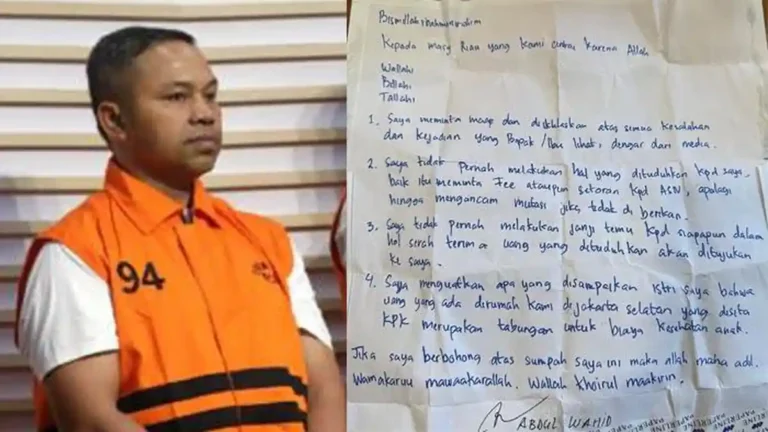 94
Bismillahirahmanirahim
Kepada masy Riau yang kami cintai karena Allah
Wallahi
Billahi
Tallahi
1. Saya meminta maaf dan diikhlaskan atas semua kesalahan
dan kejadian yang Bapak/Ibu lihat, dengar dari media.
2. Saya tidak pernah melakukan hal yang dituduhkan kpd saya.
baik itu meminta Fee ataupun setoran kpd ASN, apalagi
hingga mengancam mutasi jika tidak di berikan.
3. Saya tidak pernah melakukan janji temu kpd siapapun dalam
hal serah terima uang yang dituduhkan akan ditujukan
ke saya.
4. Saya menguatkan apa yang disampaikan istri saya bahwa
uang yang ada dirumah kami di jakarta selatan yang disita
KPK merupakan tabungan untuk biaya kesehatan anak.
Jika saya berbohong atas sumpah saya ini maka allah maha adil.
Wamakaruu mawaakarallah. Wallah khoirul maakirin.
ABDUL WAHID
PAPERLINE